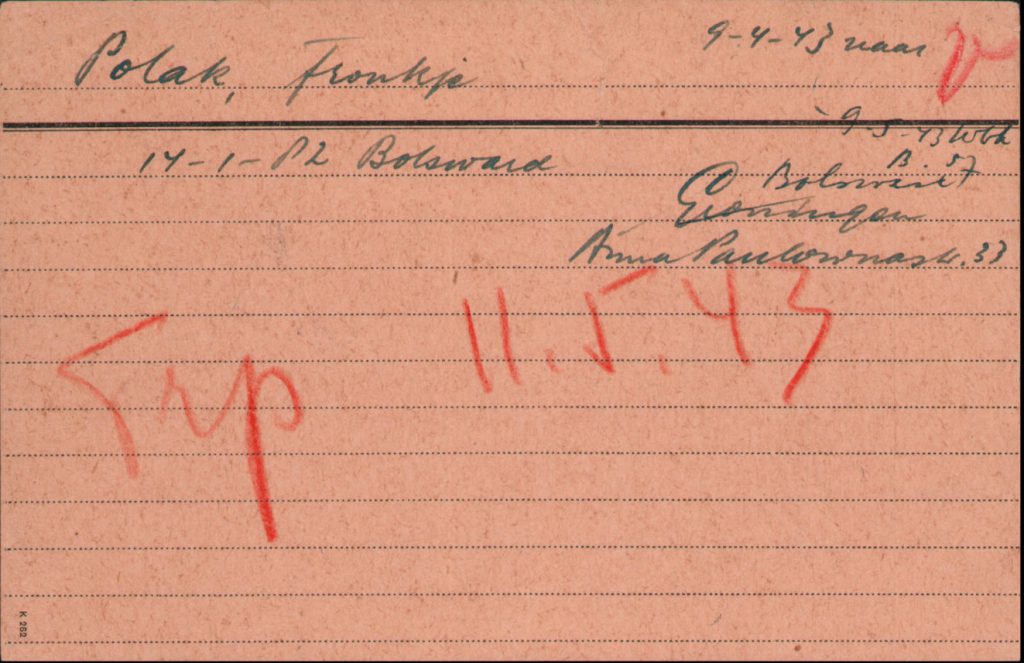 Polak, Froukje
9-4-43 naar
9-5-43 Wbk
14-1-82 Bolsward
B. 57
Bolsward
Groningen
Anna Paulownastr. 33
Trp 11.5.43
K 262